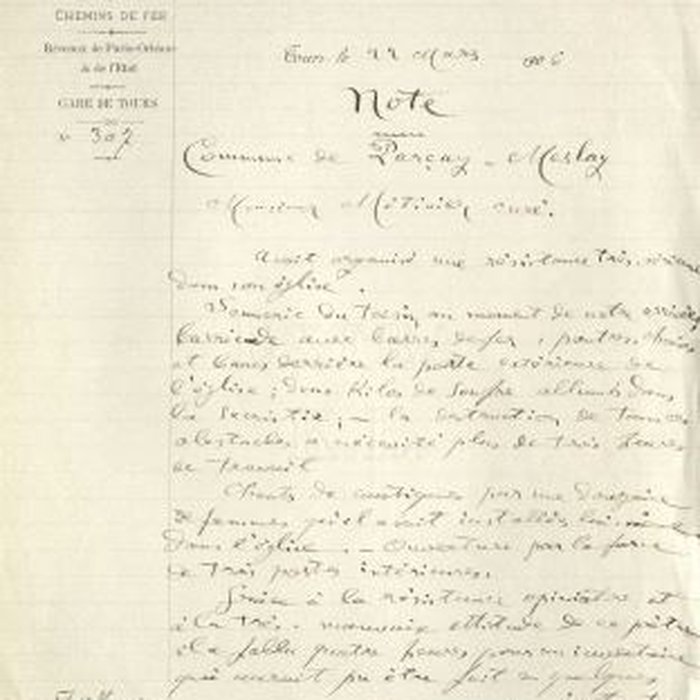 CHEMINS DE FER
Réseaux de Paris-Orléans
& de l'Etat
GARE DE TOURS
N° 307
Tours, le 22 Mars 906
Note
Commune de Parçay-Meslay
Monsieur Métivier curé.
Avait organisé une résistance très
dans son église.
Sonnerie du tocsin, au moment de notre arrivée
barricade avec barres de fer, poutres, chaises
et bancs derrière la porte extérieure de
l'église ; deux kilos de soufre allumés dans
la sacristie ; — la destruction de tous ces
obstacles a nécessité plus de trois heures
de travail
Chants de cantiques par une douzaine
de femmes qu'il avait installées lui-même
dans l'église. — Ouverture par la force
de trois portes intérieures.
Grâce à la résistance opiniâtre et
à la très mauvaise attitude de ce prêtre
il a fallu quatre heures pour un inventaire
qui aurait pu être fait en quelques